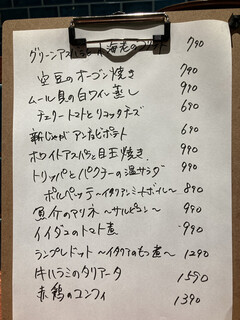 グリーンアスパラと小海老のフリット 790
空豆のオーブン焼き 790
ムール貝の白ワイン蒸し 990
チェリートマトとリコッタチーズ 690
新じゃがアンチョビポテト 690
ホワイトアスパラと目玉焼き 990
トリッパとパクチーの温サラダ 990
ポルペッテ〜イタリアンミートボール〜 890
魚介のマリネ〜サルピコン〜 990
イイダコのトマト煮 990
ランプレドット〜イタリアのもつ煮〜 1290
牛ハラミのタリアータ 1590
赤鶏のコンフィ 1390